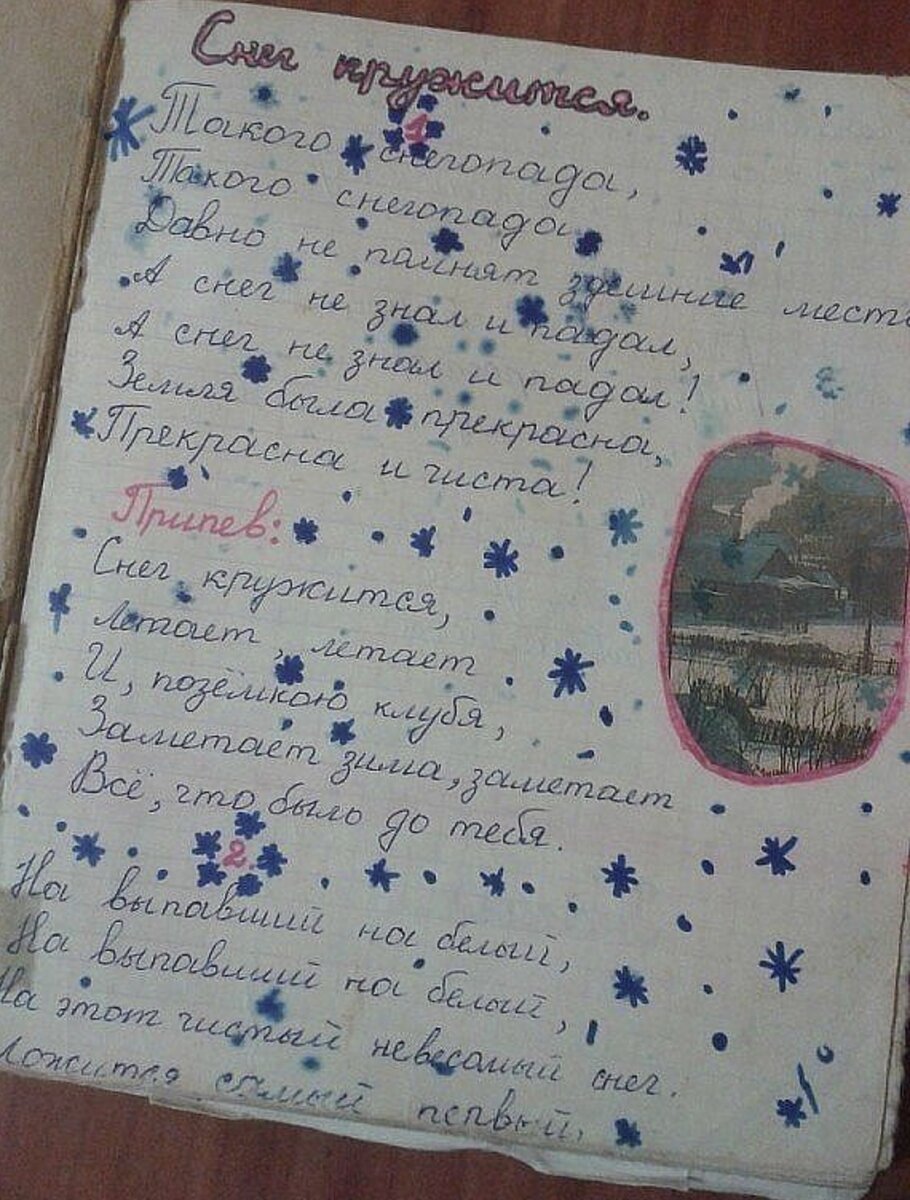 Снег кружится.
1
Такого снегопада,
Такого снегопада
Давно не памнят здешние места
А снег не знал и падал,
А снег не знал и падал!
Земля была прекрасна,
Прекрасна и чиста!
Припев:
Снег кружится,
Летает, летает
И, позёмкою клубя,
Заметает зима, заметает
Всё, что было до тебя.
2.
На выпавший на белый,
На выпавший на белый,
На этот чистый невесомый снег.
Ложится самый первый,